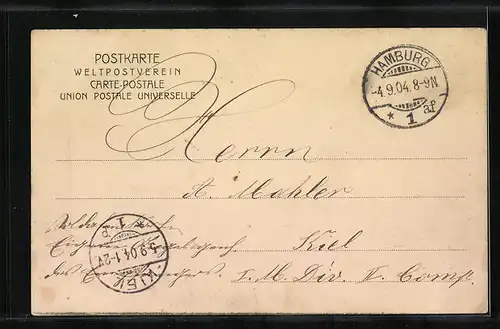 POSTKARTE
WELTPOSTVEREIN
CARTE-POSTALE
UNION POSTALE UNIVERSELLE
HAMBURG
-4.9.04. 8-9N
* 1 af
Herrn
A. Mahler
Kiel
I. M. Div. II. Comp.
KIEL
5.9.04.1-2V
* 1 P
des